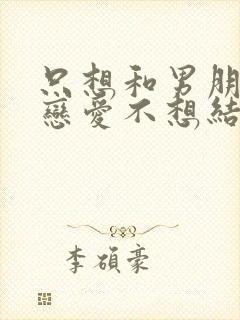 只想和男朋
戀愛不想結
李碩豪